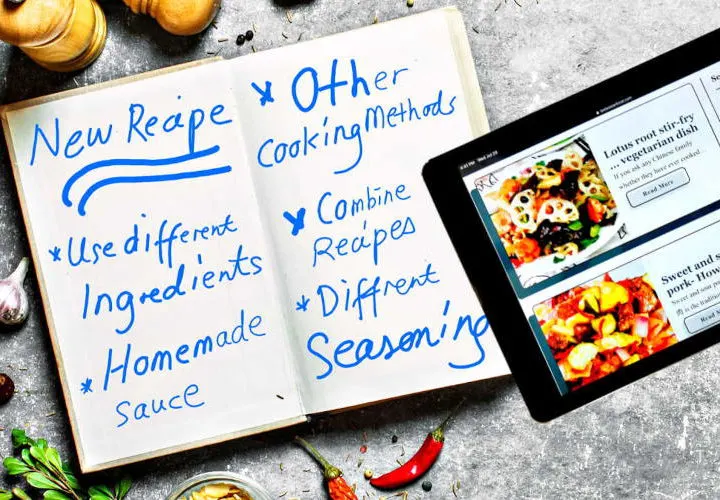 New Recipe
* Use different
Ingredients
* Homemade
sauce
* Other
Cooking Methods
* Combine
Recipes
* Diffrent
Seasoning
Lotus root stir-fry
... vegetarian dish
If you ask any Chinese family
whether they have ever cooked...
Read More
Sweet and s
pork- How
Sweet and sour
is the traditional
Read M